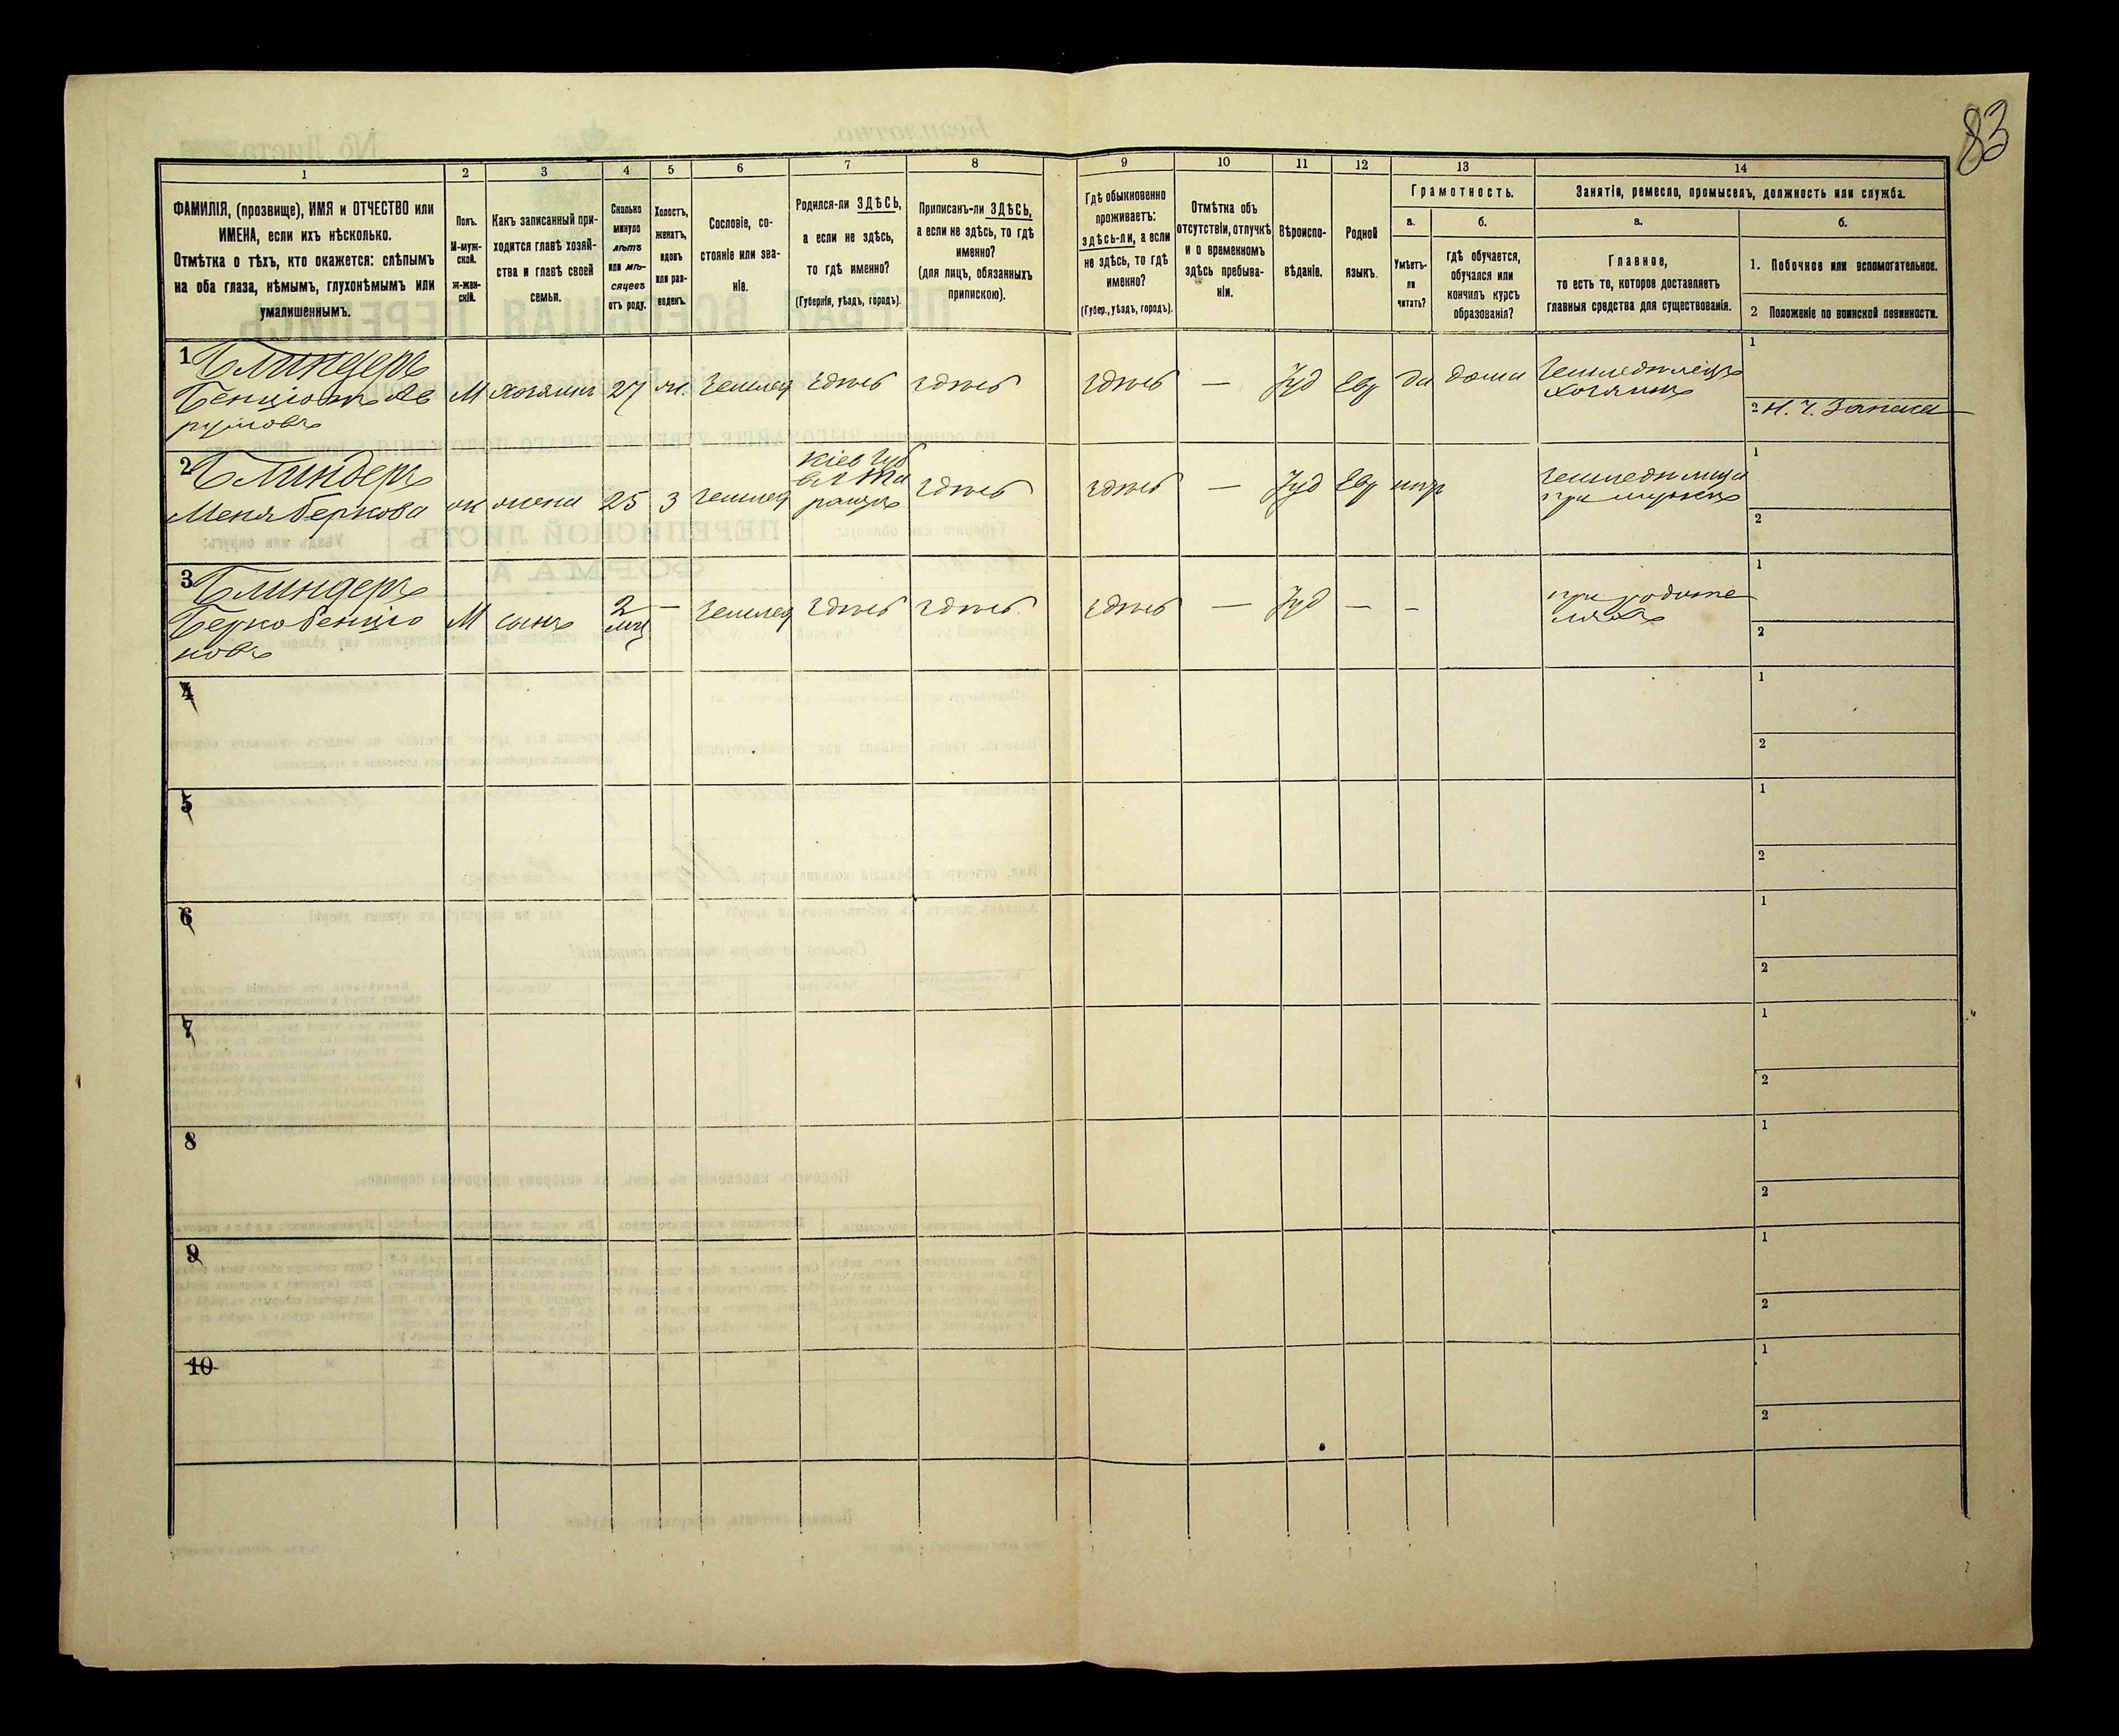 83
1
2
3
4
5
6
7
8
9
10
11
12
13
14
ФАМИЛІЯ, (прозвище), ИМЯ и ОТЧЕСТВО или
ИМЕНА, если ихъ нѣсколько.
Отмѣтка о тѣхъ, кто окажется: слѣпымъ
на оба глаза, нѣмымъ, глухонѣмымъ или
умалишеннымъ.
Полъ.
М-муж-
ской.
ж-жен-
скій.
Какъ записанный при-
ходится главѣ хозяй-
ства и главѣ своей
семьи.
Сколько
минуло
лѣтъ
или мѣ-
сяцевъ
отъ роду.
Холостъ,
женатъ,
вдовъ
или раз-
веденъ.
Сословіе, со-
стояніе или зва-
ніе.
Родился-ли ЗДѢСЬ,
а если не здѣсь,
то гдѣ именно?
(Губернія, уѣздъ, городъ).
Приписанъ-ли ЗДѢСЬ,
а если не здѣсь, то гдѣ
именно?
(для лицъ, обязанныхъ
припискою).
Гдѣ обыкновенно
проживаетъ:
здѣсь-ли, а если
не здѣсь, то гдѣ
именно?
(Губер., уѣздъ, городъ).
Отмѣтка объ
отсутствіи, отлучкѣ
и о временномъ
здѣсь пребыва-
ніи.
Вѣроиспо-
вѣданіе.
Родной
языкъ.
Грамотность.
а.
Умѣетъ-
ли
читать?
б.
гдѣ обучается,
обучался или
кончилъ курсъ
образованія?
Занятіе, ремесло, промыселъ, должность или служба.
а.
Главное,
то есть то, которое доставляетъ
главныя средства для существованія.
б.
1. Побочное или вспомогательное.
2 Положеніе по воинской повинности.
1 Блиндеръ
Бенціонъ Ав
румовъ
М хозяинъ 27 ж. Землед здѣсь здѣсь здѣсь — Іуд Евр да дома
Земледѣлецъ
хозяинъ
1
2 Н. Ч. Запаса
2 Блиндеръ
Меня Беркова
ж жена 25 З Землед
Кіев губ
Та
раща
здѣсь здѣсь — Іуд Евр
Земледѣлица
при мужѣ
1
2
3 Блиндеръ
Берко Бенціо
новъ
М сынъ 2
мц
— Землед здѣсь здѣсь здѣсь — Іуд — —
при родите
ляхъ
1
2
4
1
2
5
1
2
6
1
2
7
1
2
8
1
2
9
1
2
10
1
2